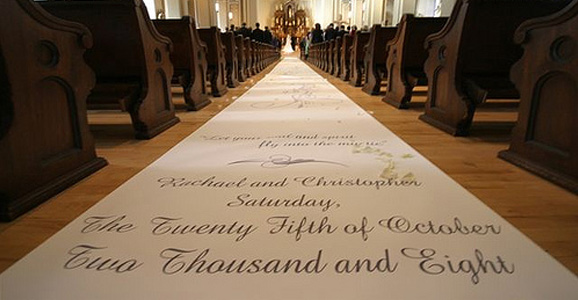 "Let your soul and spirit
fly into the mystic"
Rachael and Christopher
Saturday,
The Twenty Fifth of October
Two Thousand and Eight